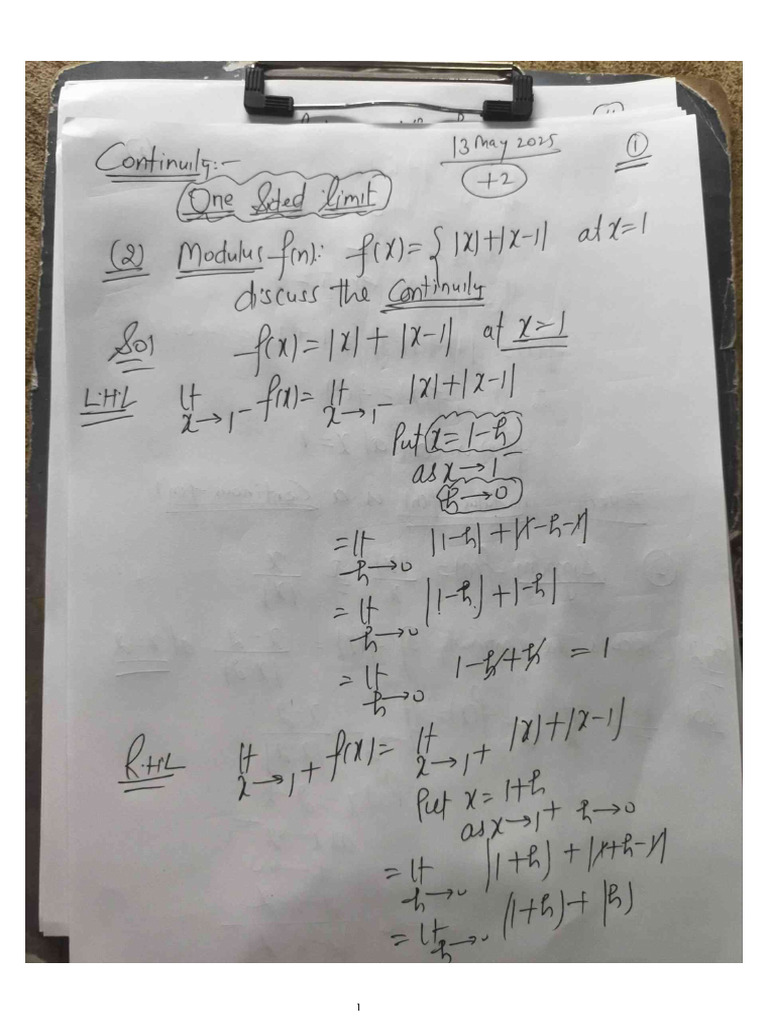 13 May 2025
①
Continuity:-
+2
One Sided limit
(2) Modulus f(n): f(x) = { |x|+|x-1| at x=1
discuss the Continuity
Sol f(x) = |x| + |x-1| at x=1
L.H.L lt x→1- f(x) = lt x→1- |x|+|x-1|
Put x = 1-h
as x→1-
h→0
= lt h→0 |1-h| + |1-h-1|
= lt h→0 |1-h| + |-h|
= lt h→0 1-h+h = 1
R.H.L lt x→1+ f(x) = lt x→1+ |x|+|x-1|
Put x = 1+h
as x→1+ h→0
= lt h→0 |1+h| + |1+h-1|
= lt h→0 (1+h) + |h|
1